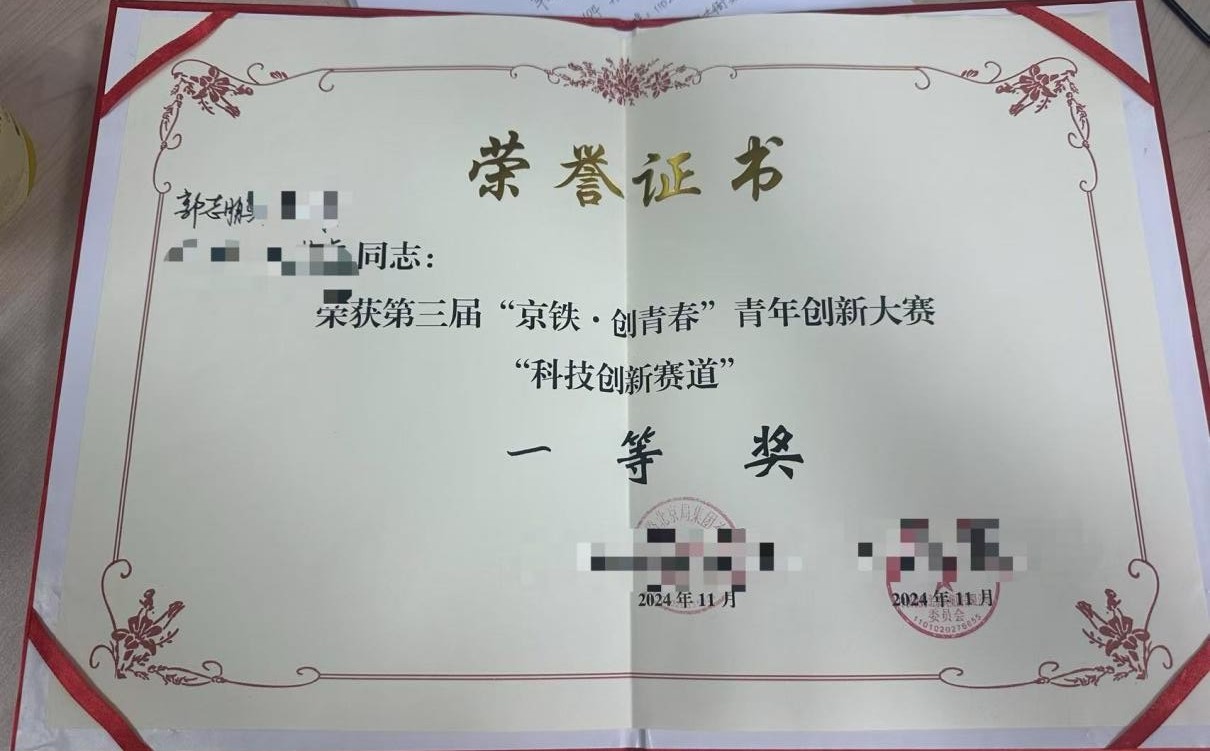 荣誉证书
郭志鹏
同志：
荣获第三届“京铁·创青春”青年创新大赛
“科技创新赛道”
一等奖
北京局集团
2024年11月
2024年11月
委员会